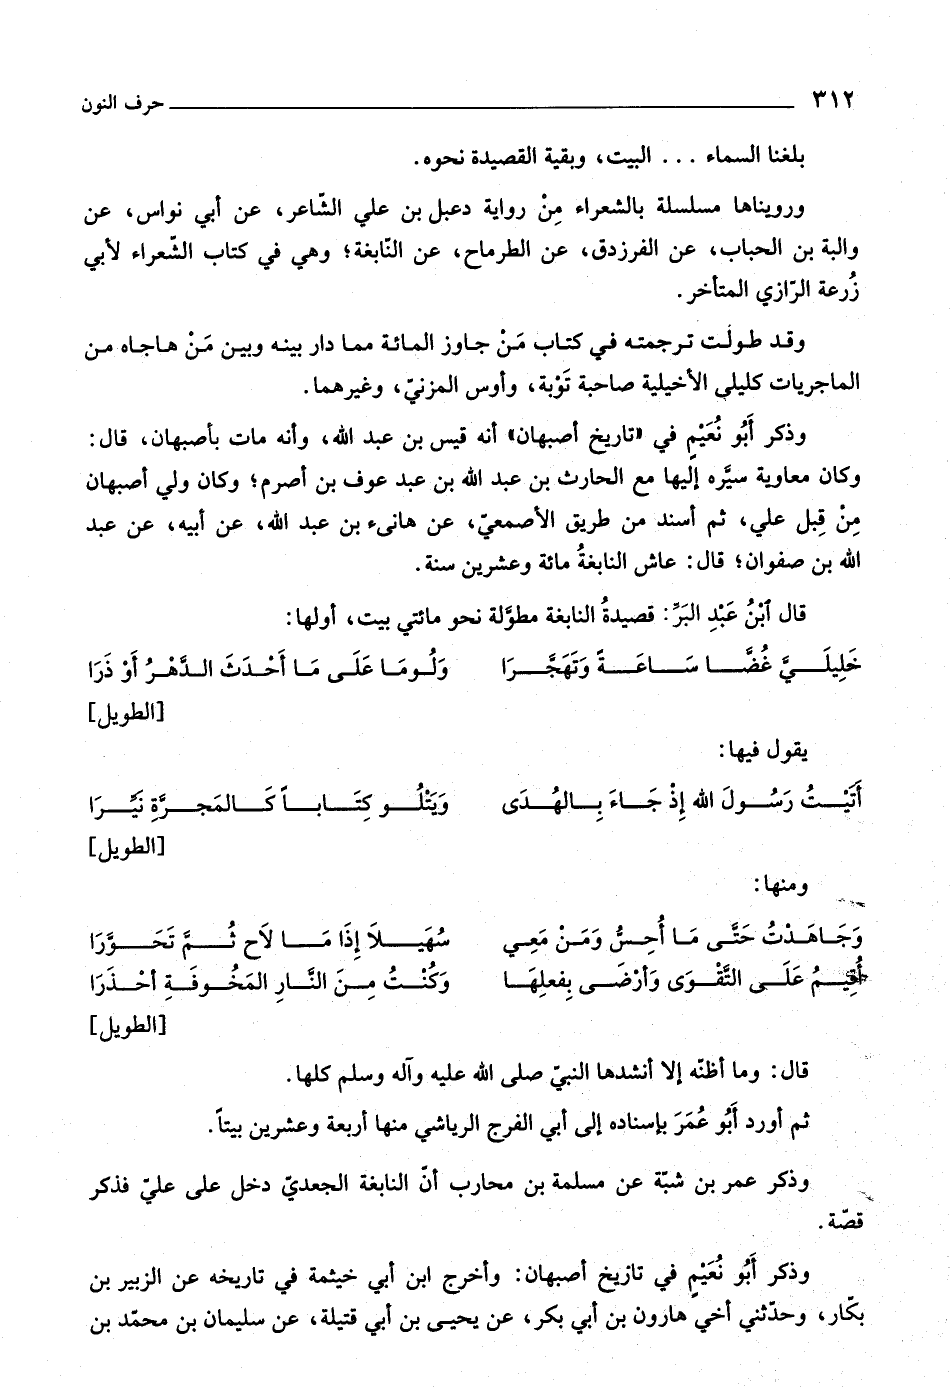 ٣١٢ حرف النون
بلغنا السماء ... البيت، وبقية القصيدة نحوه.
ورويناها مسلسلة بالشعراء مِنْ رواية دعبل بن علي الشّاعر، عن أبي نواس، عن
والبة بن الحباب، عن الفرزدق، عن الطرماح، عن النّابغة؛ وهي في كتاب الشّعراء لأبي
زُرعة الرّازي المتأخر.
وقد طولت ترجمته في كتاب مَنْ جاوز المائة مما دار بينه وبين مَنْ هاجاه من
الماجريات كليلى الأخيلية صاحبة تَوْبة، وأوس المزنيّ، وغيرهما.
وذكر أَبُو نُعَيْمٍ في «تاريخ أصبهان» أنه قيس بن عبد الله، وأنه مات بأصبهان، قال:
وكان معاوية سيَّره إليها مع الحارث بن عبد الله بن عبد عوف بن أصرم؛ وكان ولي أصبهان
مِنْ قِبل علي، ثم أسند من طريق الأصمعيّ، عن هانىء بن عبد الله، عن أبيه، عن عبد
الله بن صفوان؛ قال: عاش النابغةُ مائة وعشرين سنة.
قال ٱبْنُ عَبْدِ البَرِّ: قصيدةُ النابغة مطوَّلة نحو مائتي بيت، أولها:
خَلِيلَيَّ غُضَّا سَاعَةً وَتَهَجَّرَا وَلُومَا عَلَى مَا أَحْدَثَ الدَّهْرُ أَوْ ذَرَا
[الطويل]
يقول فيها:
أَتَيْتُ رَسُولَ الله إِذْ جَاءَ بِالهُدَى وَيَتْلُو كِتَاباً كَالمَجرَّةِ نَيْرَا
[الطويل]
ومنها:
وَجَاهَدْتُ حَتَّى مَا أُحِسُّ وَمَنْ مَعِي سُهَيلاَ إِذَا مَا لاَح ثُمَّ تَحَوَّرَا
أُقِيمُ عَلَى التَّقْوَى وَأَرْضَى بِفعلِهَا وَكُنْتُ مِنَ النَّارِ المَخُوفَةِ أحْذَرَا
[الطويل]
قال: وما أظنّه إلا أنشدها النبيّ صلى الله عليه وآله وسلم كلها.
ثم أورد أَبُو عُمَرَ بإسناده إلى أبي الفرج الرياشي منها أربعة وعشرين بيتاً.
وذكر عمر بن شبّة عن مسلمة بن محارب أنّ النابغة الجعديّ دخل على عليّ فذكر
قصّة.
وذكر أَبُو نُعَيْمٍ في تازيخ أصبهان: وأخرج ابن أبي خيثمة في تاريخه عن الزبير بن
بكّار، وحدّثني أخي هارون بن أبي بكر، عن يحيى بن أبي قتيلة، عن سليمان بن محمّد بن